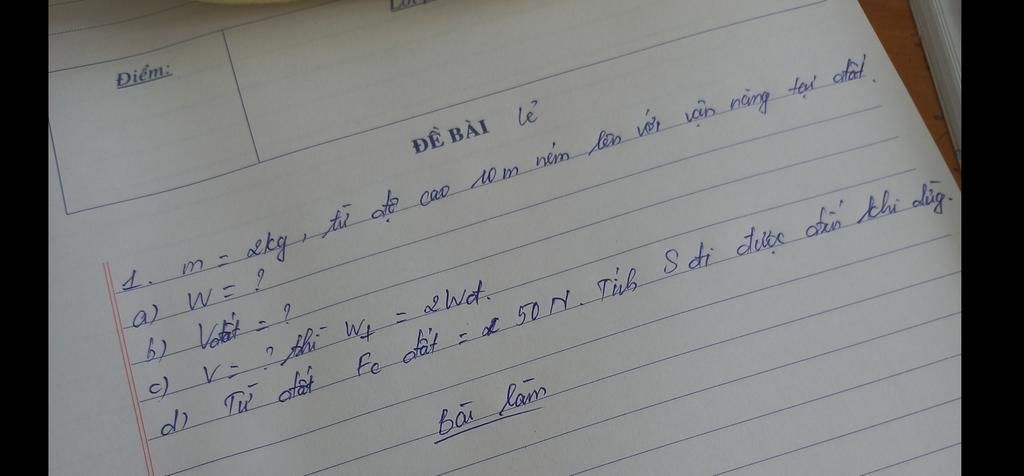 Điểm:
ĐỀ BÀI lẻ
1. m = 2kg, từ độ cao 10m ném lên với vận năng tại đất.
a) W = ?
b) Vđất = ?
c) V = ? thì Wt = 2Wđ.
d) Từ đất Fc đất = 50 N. Tính S đi được đến khi dừg.
Bài làm